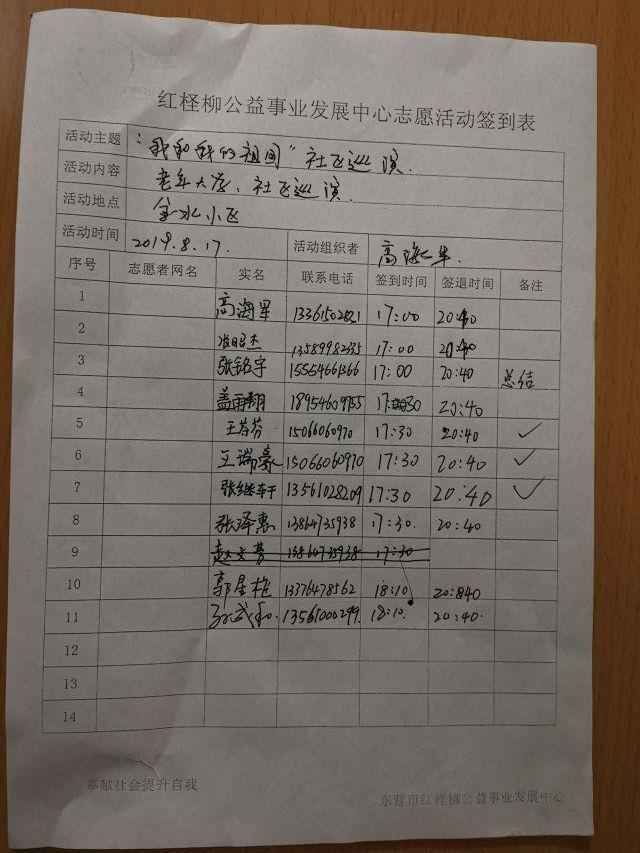 红柽柳公益事业发展中心志愿活动签到表
活动主题 :"我和我的祖国"社区巡演.
活动内容 老年大学、社区巡演.
活动地点 金水小区
活动时间 2019.8.17. 活动组织者 高海军.
序号 志愿者网名 实名 联系电话 签到时间 签退时间 备注
1 高海军 17:00 20:40
2 13589982335 17:00 20:40
3 张铭宇 15554661366 17:00 20:40 总结
4 盖雨翔 18954609755 20:40
5 15066060970 17:30 20:40 ✓
6 王瑞豪 15066060970 17:30 20:40 ✓
7 张继轩 13561028209 17:30 20:40 ✓
8 张泽惠 13864735938 17:30. 20:40
9 13864735938 17:30
10 郭星 13376478562 18:10
11 孙武 13561000299. 18:10. 20:40.
12
13
14
奉献社会提升自我
东营市红柽柳公益事业发展中心